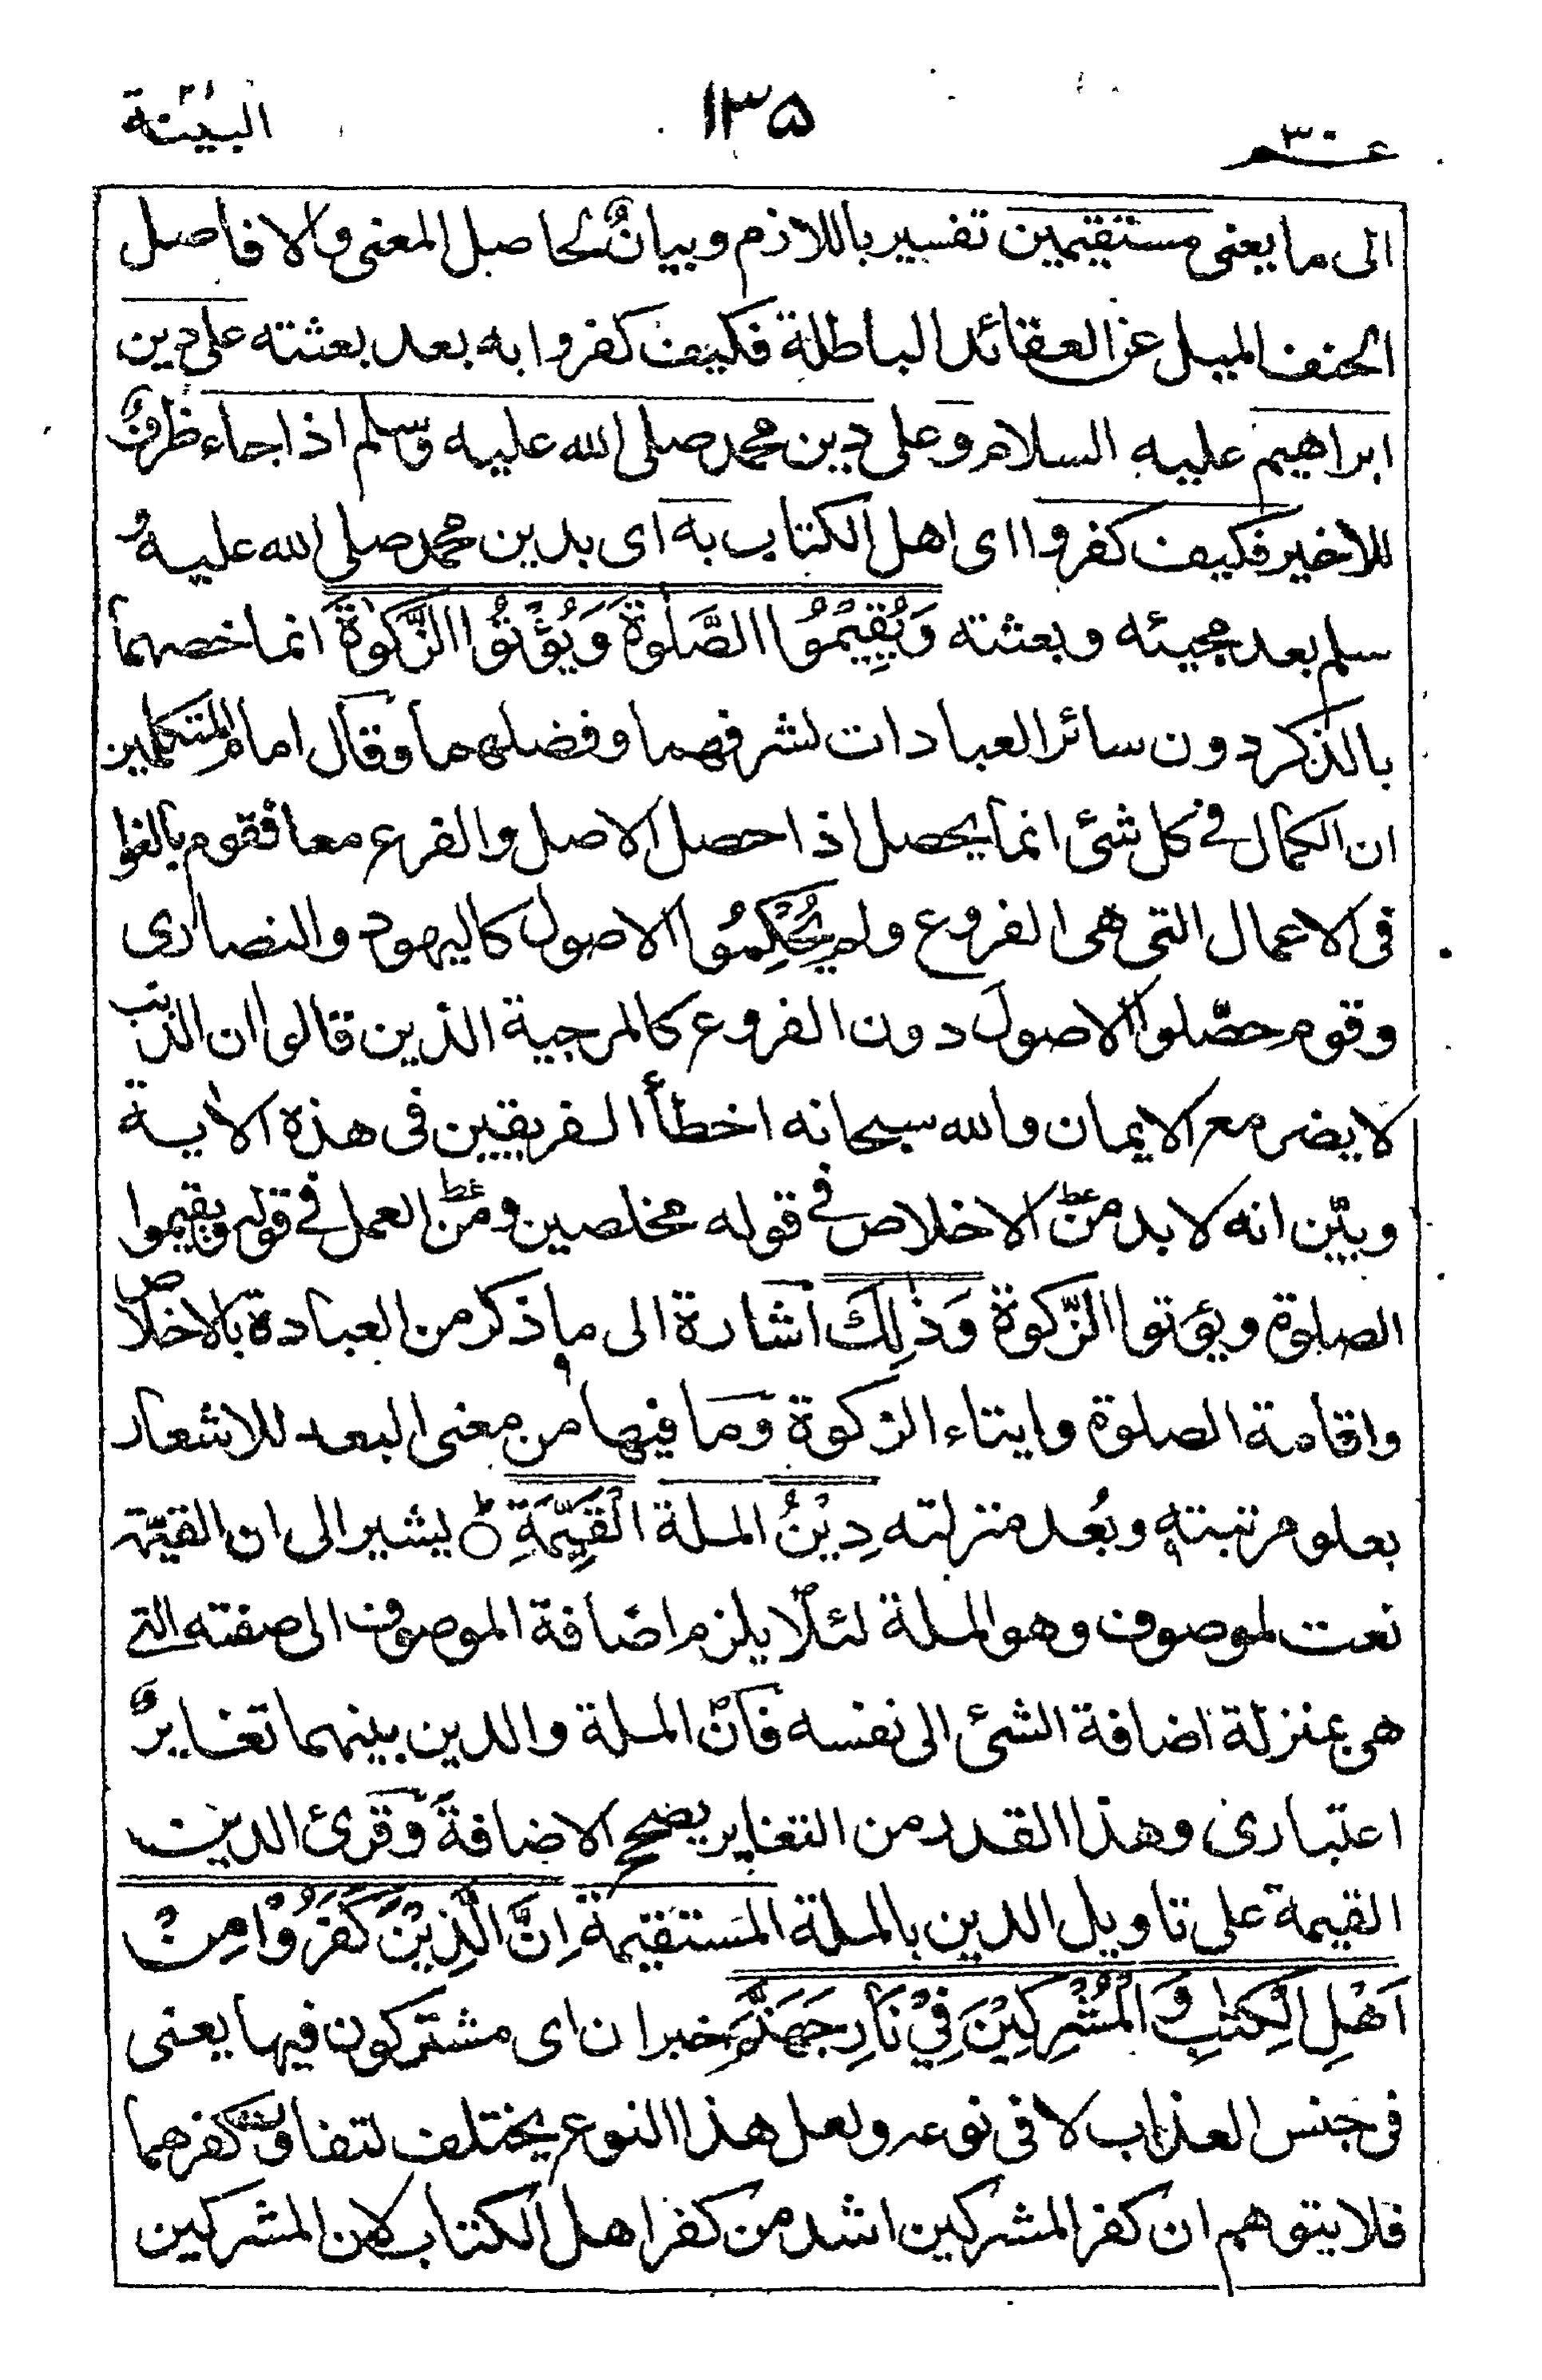 عم ٣٠
١٣٥
البينة
الى ما يعنى مستقيمين تفسير باللازم وبيانٌ لحاصل المعنى والا فاصل
الحنف الميل عن العقائد الباطلة فكيف كفروا به بعد بعثته على دين
ابراهيم عليه السلام وعلى دين محمد صلى الله عليه وسلم اذا جاء ظرفٌ
للاخير فكيف كفروا اى اهل الكتاب به اى بدين محمد صلى الله عليه و
سلم بعد مجيئه وبعثته وَيُقِيْمُوا الصَّلٰوةَ وَيُؤْتُوا الزَّكٰوةَ انما خصهما
بالذكر دون سائر العبادات لشرفهما وفضلهما وقال امام المتكلمين
ان الكمال فى كل شئ انما يحصل اذا حصل الاصل والفرع معا فقوم بالغوا
فى الاعمال التى هى الفروع ولم يُحْكِمُوا الاصول كاليهود والنصارى
وقوم حصّلوا الاصول دون الفروع كالمرجية الذين قالوا ان الذنب
لا يضر مع الايمان والله سبحانه اخطأ الفريقين فى هذه الاية
وبيّن انه لا بد من الاخلاص فى قوله مخلصين ومن العمل فى قوله ويقيموا
الصلوة ويؤتوا الزّكوة وَذٰلِكَ اشارة الى ما ذكر من العبادة بالاخلاص
واقامة الصلوة وايتاء الزكوة وما فيها من معنى البعد للاشعار
بعلو مرتبته وبُعد منزلته دِيْنُ الملة الْقَيِّمَةِ ۝ يشير الى ان القيّمة
نعت لموصوف وهو الملة لئلّا يلزم اضافة الموصوف الى صفته التى
هى بمنزلة اضافة الشئ الى نفسه فانّ الملة والدين بينهما تغايرٌ
اعتبارى وهذا القدر من التغاير يصحح الاضافة وقرئ الدين
القيمة على تاويل الدين بالملة المستقيمة اِنَّ الَّذِيْنَ كَفَرُوْا مِنْ
اَهْلِ الْكِتٰبِ وَالْمُشْرِكِيْنَ فِيْ نَارِ جَهَنَّمَ خبر ان اى مشتركون فيها يعنى
فى جنس العذاب لا فى نوعه ولعل هذا النوع يختلف لتفاوت كفرهما
فلا يتوهم ان كفر المشركين اشد من كفر اهل الكتاب لان المشركين